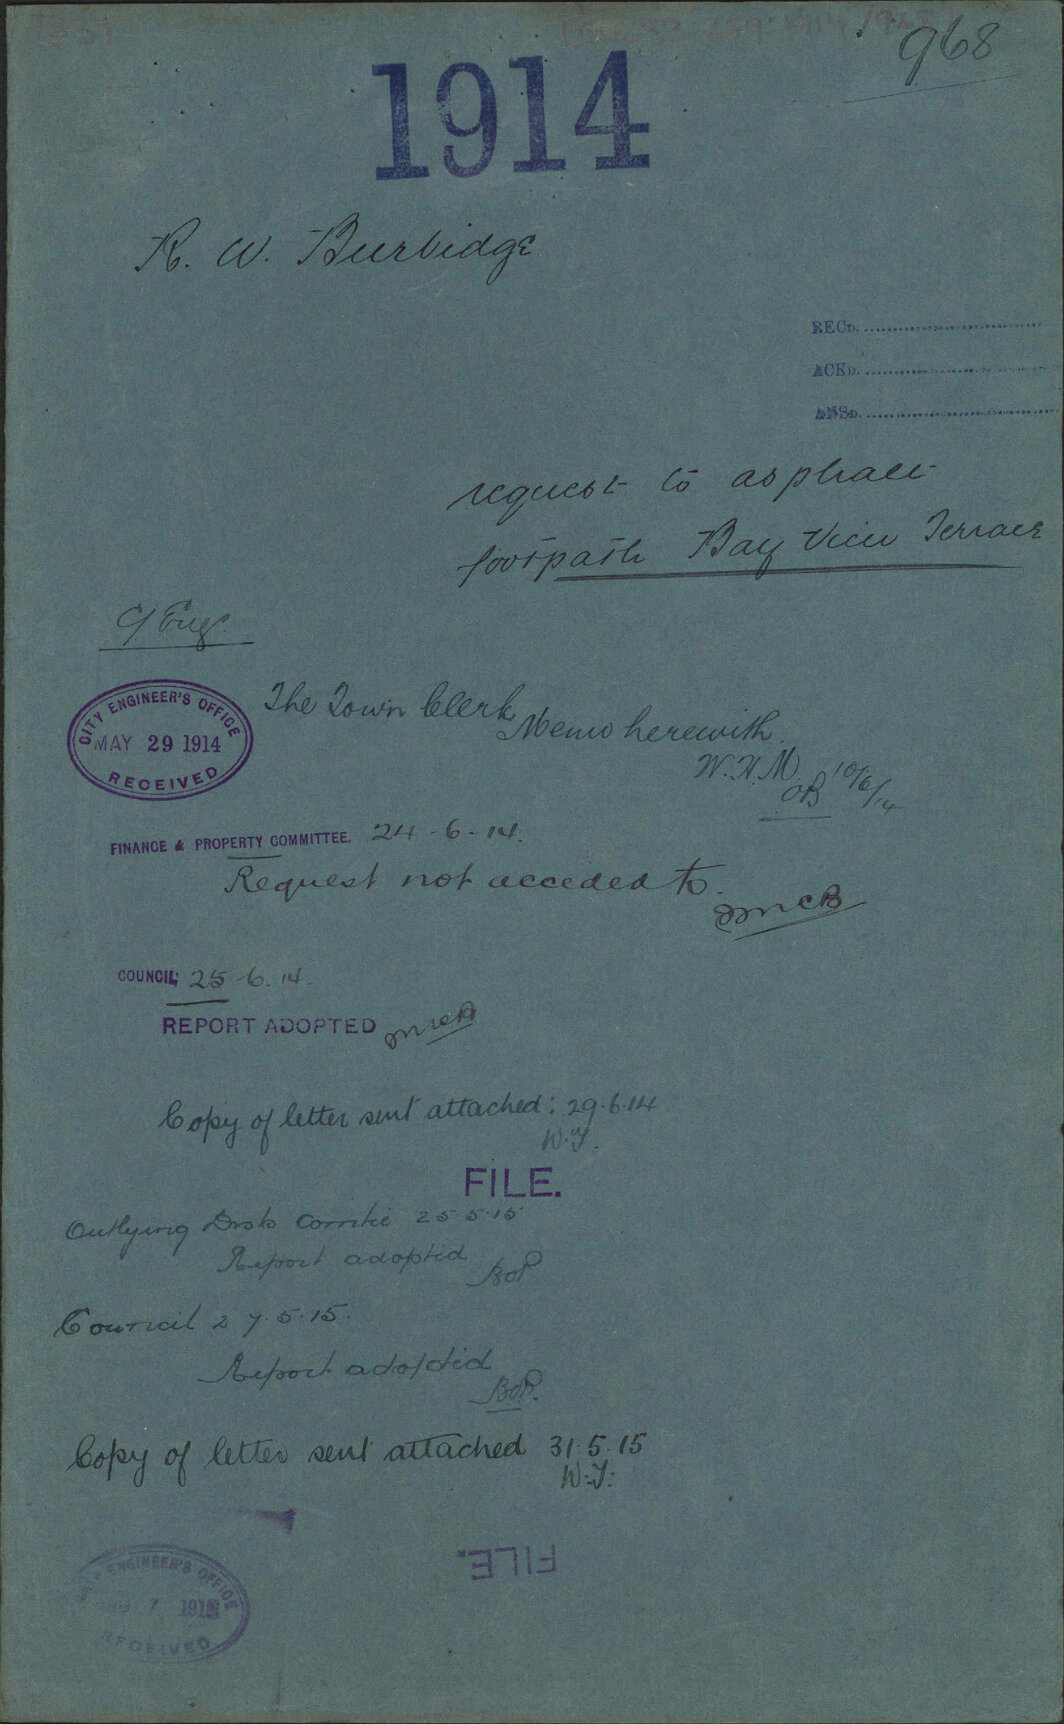 968
1914
R. W. Burbidge
RECD.
ACKD.
ANSD.
request to asphalt
footpath Bay View Terrace
C/ Eng.
CITY ENGINEER'S OFFICE
MAY 29 1914
RECEIVED
The Town Clerk
Memo herewith.
W.H.M.
10/6/14
FINANCE & PROPERTY COMMITTEE. 24-6-14.
Request not acceded to.
COUNCIL 25-6.14.
REPORT ADOPTED
Copy of letter sent attached: 29.6.14
W.Y.
FILE.
Outlying Dists Comtee 25.5.15
Report adopted
Council 27.5.15.
Report adopted
Copy of letter sent attached 31.5.15
W.Y.
FILE.
CITY ENGINEER'S OFFICE
RECEIVED